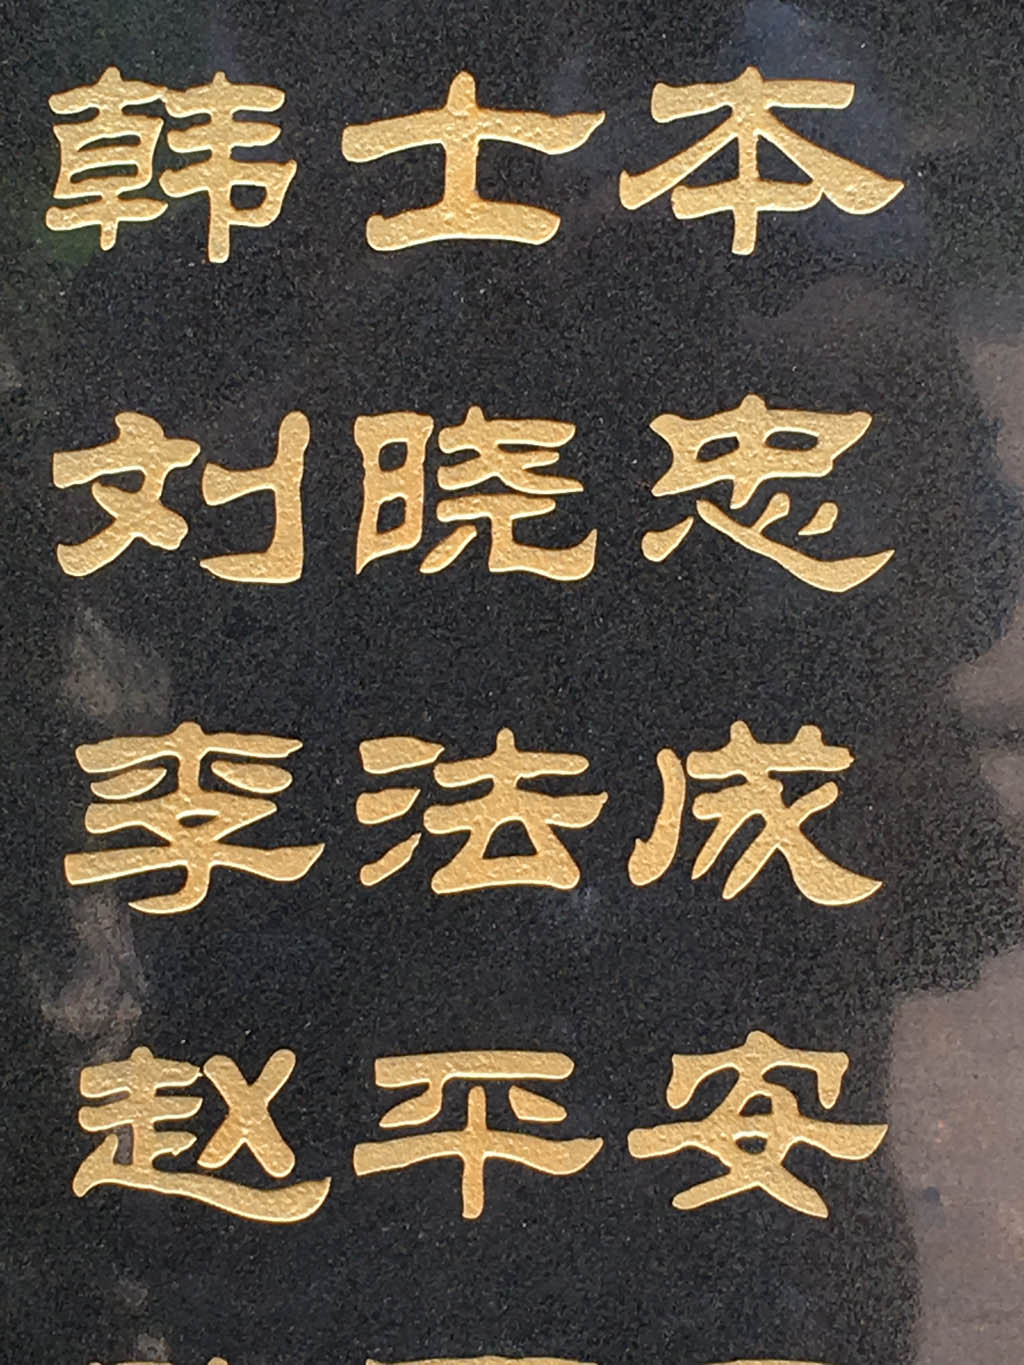 韩士本
刘晓忠
李法成
赵平安